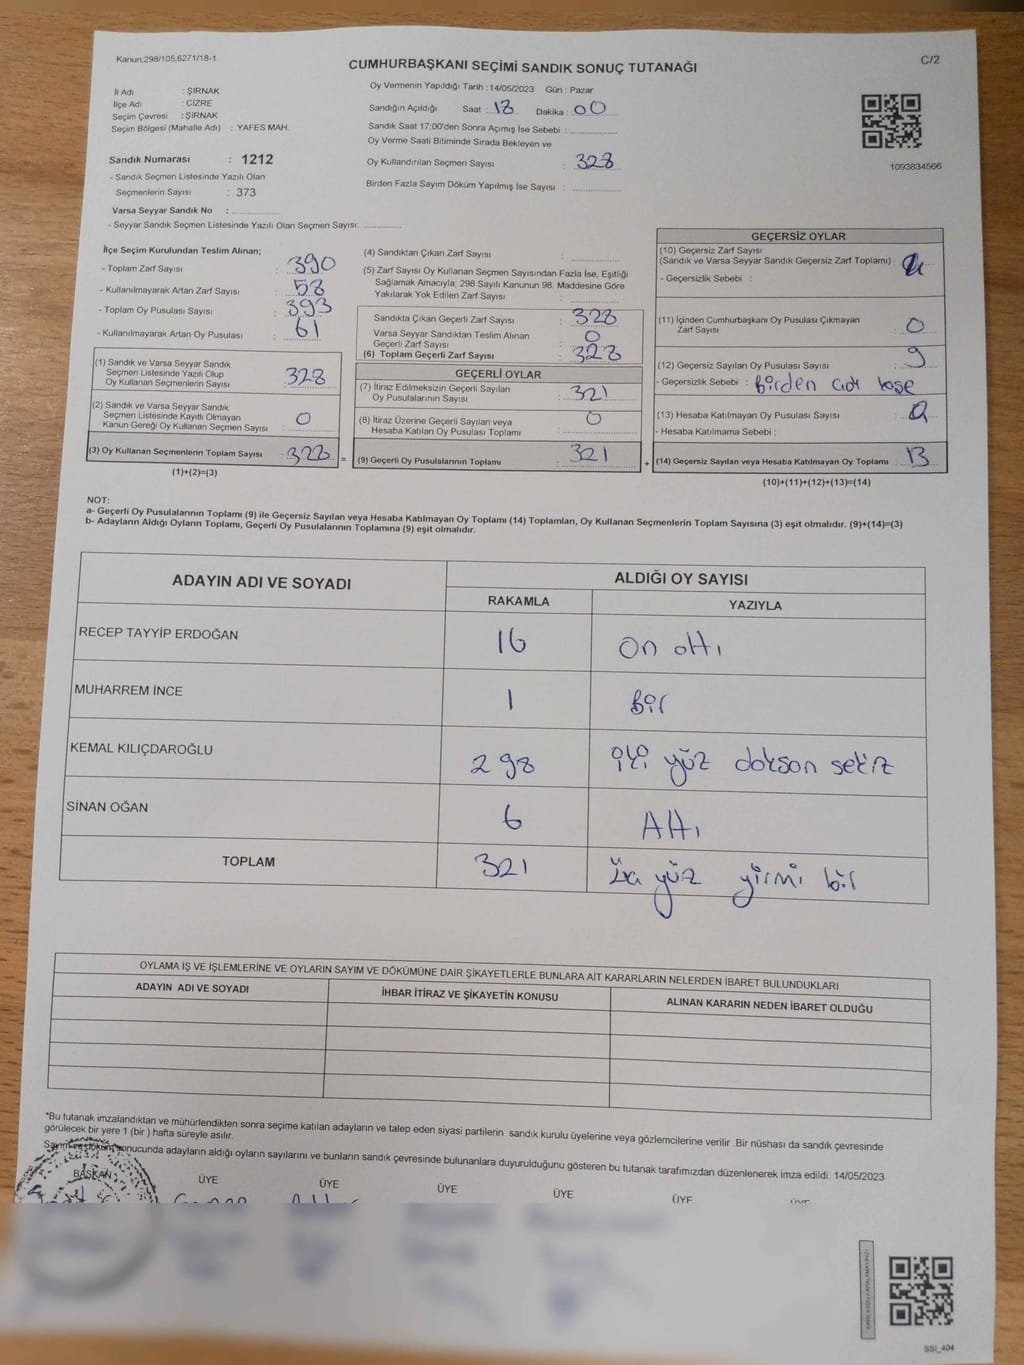 Kanun;298/105;6271/18-1
C/2
CUMHURBAŞKANI SEÇİMİ SANDIK SONUÇ TUTANAĞI
İl Adı : ŞIRNAK
İlçe Adı : CİZRE
Seçim Çevresi : ŞIRNAK
Seçim Bölgesi (Mahalle Adı) : YAFES MAH.
Oy Vermenin Yapıldığı Tarih :14/05/2023 Gün : Pazar
Sandığın Açıldığı Saat : 18 Dakika : 00
Sandık Saat 17:00'den Sonra Açımış İse Sebebi :
Oy Verme Saati Bitiminde Sırada Bekleyen ve
Oy Kullandırılan Seçmen Sayısı : 328
Birden Fazla Sayım Döküm Yapılmış İse Sayısı :
1093834566
Sandık Numarası : 1212
- Sandık Seçmen Listesinde Yazılı Olan
Seçmenlerin Sayısı : 373
Varsa Seyyar Sandık No :
- Seyyar Sandık Seçmen Listesinde Yazılı Olan Seçmen Sayısı:
İlçe Seçim Kurulundan Teslim Alınan;
- Toplam Zarf Sayısı : 390
- Kullanılmayarak Artan Zarf Sayısı : 58
- Toplam Oy Pusulası Sayısı : 393
- Kullanılmayarak Artan Oy Pusulası : 61
(1) Sandık ve Varsa Seyyar Sandık
Seçmen Listesinde Yazılı Olup
Oy Kullanan Seçmenlerin Sayısı : 328
(2) Sandık ve Varsa Seyyar Sandık
Seçmen Listesinde Kayıtlı Olmayan
Kanun Gereği Oy Kullanan Seçmen Sayısı : 0
(3) Oy Kullanan Seçmenlerin Toplam Sayısı : 328
(1)+(2)=(3)
(4) Sandıktan Çıkan Zarf Sayısı :
(5) Zarf Sayısı Oy Kullanan Seçmen Sayısından Fazla İse, Eşitliği
Sağlamak Amacıyla; 298 Sayılı Kanunun 98. Maddesine Göre
Yakılarak Yok Edilen Zarf Sayısı :
Sandıkta Çıkan Geçerli Zarf Sayısı : 328
Varsa Seyyar Sandıktan Teslim Alınan
Geçerli Zarf Sayısı : 0
(6) Toplam Geçerli Zarf Sayısı : 328
GEÇERLİ OYLAR
(7) İtiraz Edilmeksizin Geçerli Sayılan
Oy Pusulalarının Sayısı : 321
(8) İtiraz Üzerine Geçerli Sayılan veya
Hesaba Katılan Oy Pusulası Toplamı : 0
= (9) Geçerli Oy Pusulalarının Toplamı : 321
GEÇERSİZ OYLAR
(10) Geçersiz Zarf Sayısı
(Sandık ve Varsa Seyyar Sandık Geçersiz Zarf Toplamı) :
- Geçersizlik Sebebi :
(11) İçinden Cumhurbaşkanı Oy Pusulası Çıkmayan
Zarf Sayısı : 0
(12) Geçersiz Sayılan Oy Pusulası Sayısı : 9
- Geçersizlik Sebebi : Birden
(13) Hesaba Katılmayan Oy Pusulası Sayısı :
- Hesaba Katılmama Sebebi :
+ (14) Geçersiz Sayılan veya Hesaba Katılmayan Oy Toplamı : 13
(10)+(11)+(12)+(13)=(14)
NOT:
a- Geçerli Oy Pusulalarının Toplamı (9) ile Geçersiz Sayılan veya Hesaba Katılmayan Oy Toplamı (14) Toplamları, Oy Kullanan Seçmenlerin Toplam Sayısına (3) eşit olmalıdır. (9)+(14)=(3)
b- Adayların Aldığı Oyların Toplamı, Geçerli Oy Pusulalarının Toplamına (9) eşit olmalıdır.
ADAYIN ADI VE SOYADI
ALDIĞI OY SAYISI
RAKAMLA YAZIYLA
RECEP TAYYİP ERDOĞAN 16 on altı
MUHARREM İNCE 1 Bir
KEMAL KILIÇDAROĞLU 298 iki yüz doksan sekiz
SİNAN OĞAN 6 Altı
TOPLAM 321 yüz yirmi bir
OYLAMA İŞ VE İŞLEMLERİNE VE OYLARIN SAYIM VE DÖKÜMÜNE DAİR ŞİKAYETLERLE BUNLARA AİT KARARLARIN NELERDEN İBARET BULUNDUKLARI
ADAYIN ADI VE SOYADI İHBAR İTİRAZ VE ŞİKAYETİN KONUSU ALINAN KARARIN NEDEN İBARET OLDUĞU
*Bu tutanak imzalandıktan ve mühürlendikten sonra seçime katılan adayların ve talep eden siyasi partilerin sandık kurulu üyelerine veya gözlemcilerine verilir .Bir nüshası da sandık çevresinde
görülecek bir yere 1 (bir ) hafta süreyle asılır.
sonucunda adayların aldığı oyların sayılarını ve bunların sandık çevresinde bulunanlara duyurulduğunu gösteren bu tutanak tarafımızdan düzenlenerek imza edildi. 14/05/2023
BAŞKAN ÜYE ÜYE ÜYE ÜYE ÜYE ÜYE
SSI_404